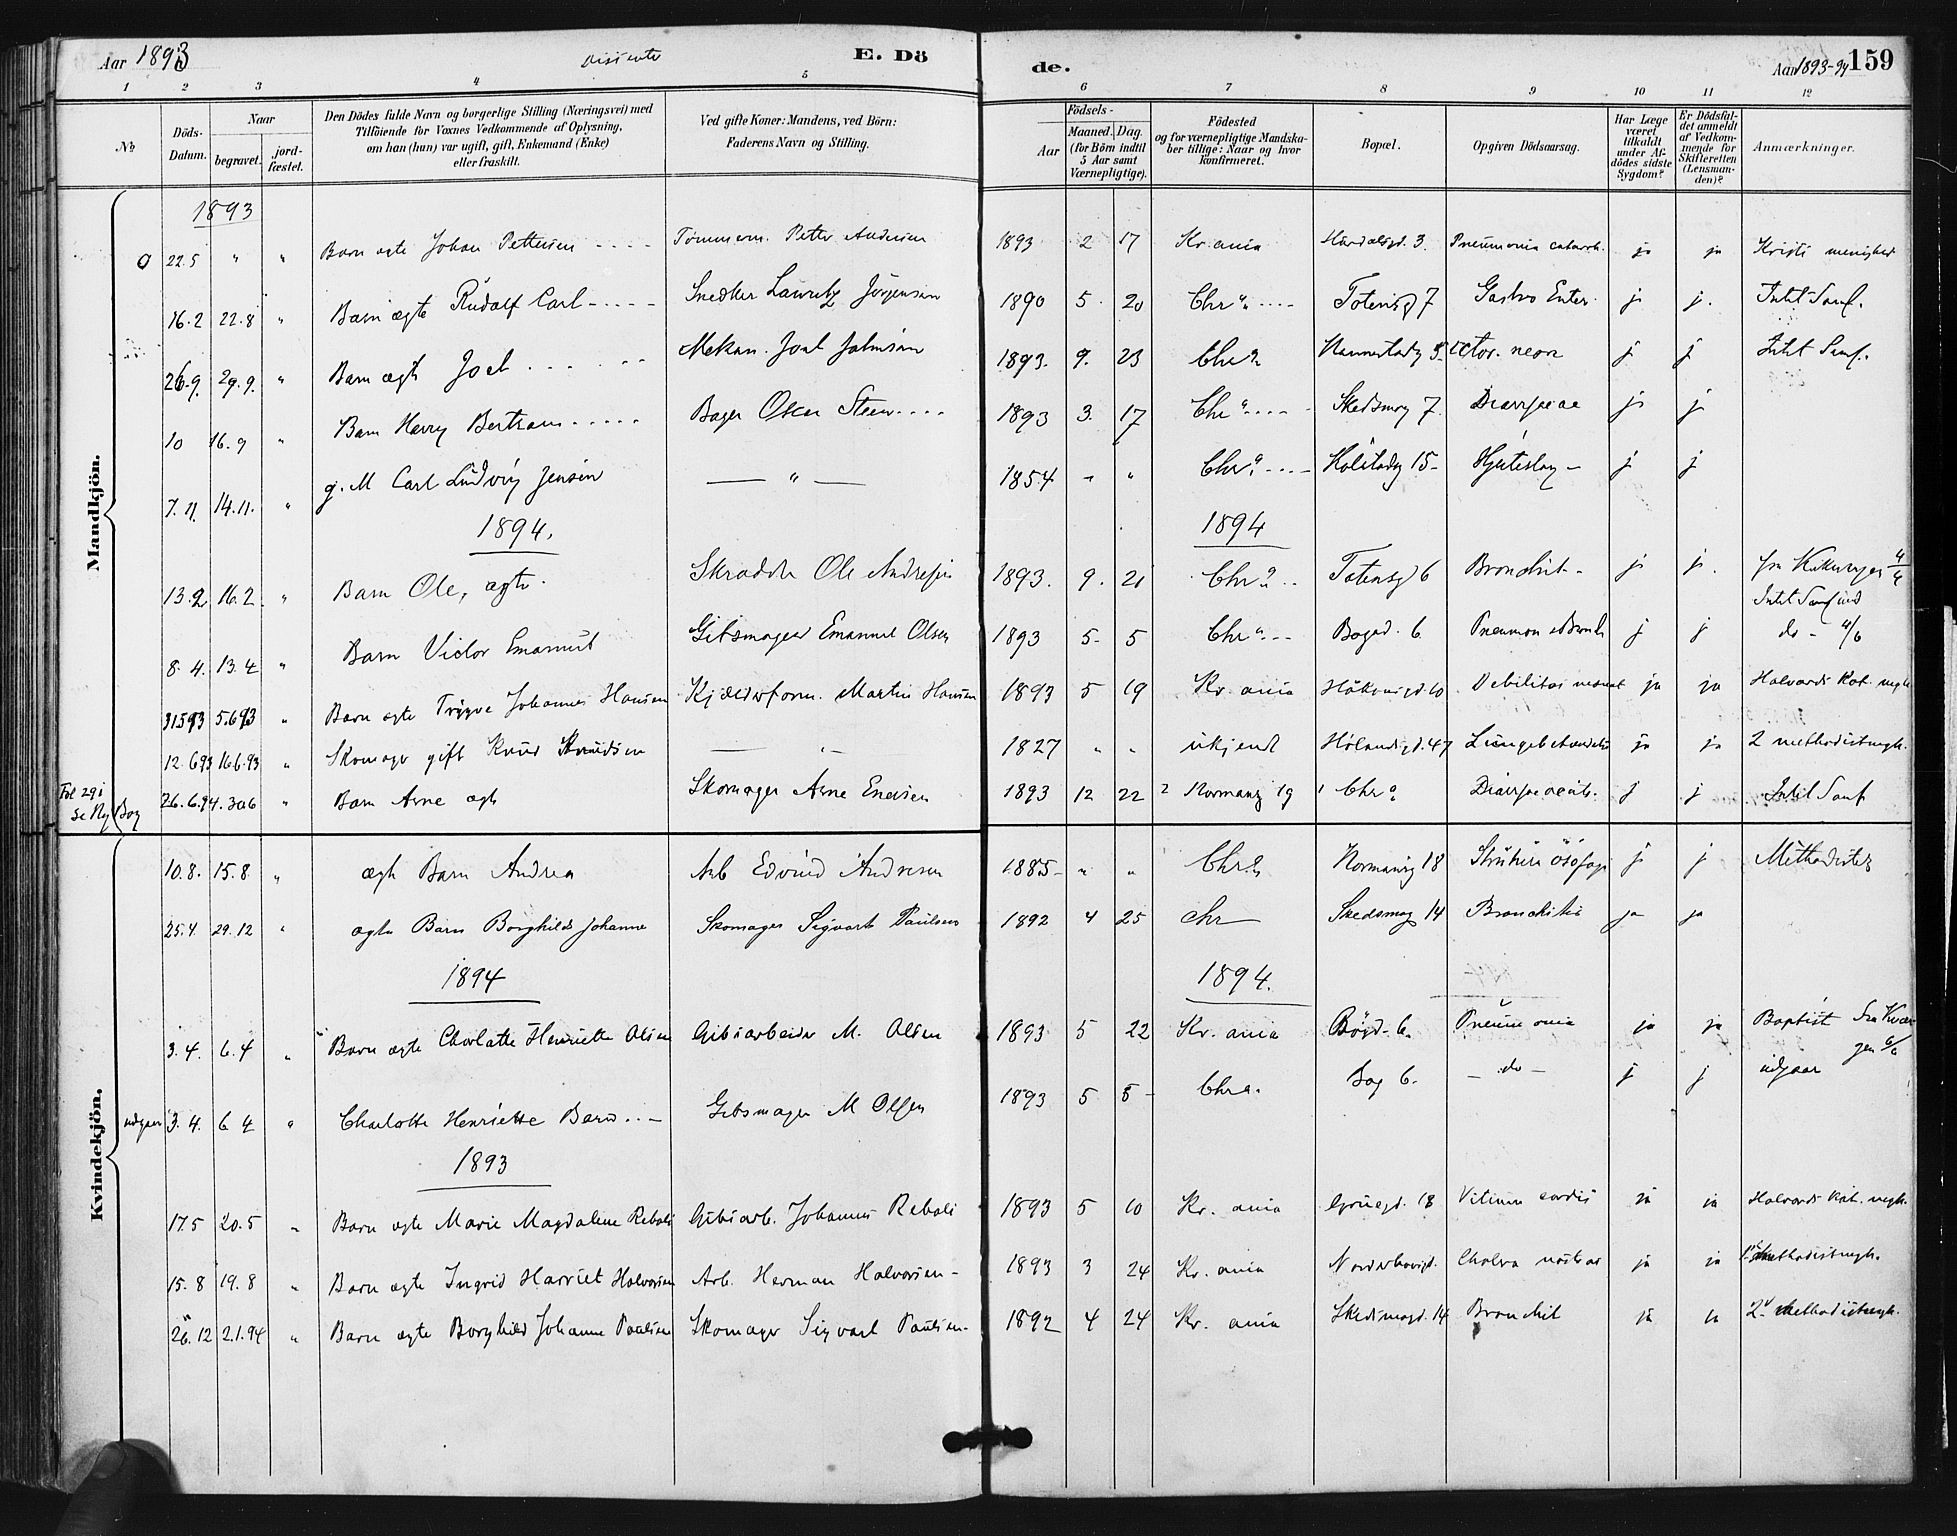 Aar 1893 Dissenter E. Dö de. Aar 1893-94 159
1 2 3 4 5 6 7 8 9 10 11 12
No
Döds-Datum.
Naar
begravet. jordfæstet.
Den Dödes fulde Navn og borgerlige Stilling (Næringsvei) med
Tilföiende for Voxnes Vedkommende af Oplysning,
om han (hun) var ugift, gift, Enkemand (Enke)
eller fraskilt.
Ved gifte Koner: Mandens, ved Börn:
Faderens Navn og Stilling.
Födsels-
Aar
Maaned. Dag.
(for Börn indtil
5 Aar samt
Værnepligtige).
Födested
og for værnepligtige Mandska-
ber tillige: Naar og hvor
konfirmeret.
Bopæl.
Opgiven Dödsaarsag.
Har Læge
været
tilkaldt
under Af-
dödes sidste
Sygdom?
Er Dödsfal-
det anmeldt
af Vedkom-
mende for
Skifteretten
(Lensman-
den)?
Anmærkninger.
Mandkjön.
1893
22.5 " " Barn ægte Johan Pettersen Tømmerm. Petter Andersen 1893 2 17 Kr.ania 3. Pneumonia catarrh. ja ja Kristi menighed
16.2 22.8 " Barn ægte Rudolf Carl Snedker Lauritz Jørgensen 1890 5 20 Chr.a Totensgd 7 Gastro Enter. j j. Intet Samf.
26.9. 29.9. " Barn ægte Joel Mekan. Joel Johnsen 1893. 9. 23 Chr.a 5 neon j j Intet Samf.
10 16.9 " Barn Harry Bertram Bager Oscar Steen 1893 3. 17 Chr.a Skedsmog 7. j j
7.11. 14.11. " g. M Carl Ludvig Jensen — " — 1854 " " Chr.a 15 Hjerteslag j j
1894. 1894
13.2 16.2 " Barn Ole, ægte. Skrædder Ole Andresen 1893. 9. 21 Chr.a Totensgd 6 Bronchit j j. fra 4/4
Intet Samfund
8.4. 13.4 " Barn Victor Emanuel Gibsmager Emanuel Olsen 1893 5 5 Chr.a Bogd. 6 Pneumon j j do - 4/6
31593 5.693 " Barn ægte Trygve Johannes Hansen Martin Hansen 1893 5 19 Kr.ania Håkonsgd. 10 Debilitas ja ja Halvards Kat. mgh.
12.693 16.6.93 " Skomager gift Knud Knudsen — " — 1827 " " ukjendt Hølandsgd. 47 Lungebetændelse ja ja 2 methodistmgh.
Fol 291
se Ny Bog 26.6.94. 30.6 " Barn Arne ægte Skomager Arne Enersen 1893 12 22 2 Normansg 19 1 Chr.a j j Intet Samf
Kvindekjön.
10.8. 15.8 " ægte Barn Andrea Arb Edvind Andresen 1885 " " Chr.a Normansg 18 j j Methodister
25.4. 29.12 " ægte Barn Borghild Johanne Skomager Sigvart Paulsen 1892 4 25 Chr Skedsmog 14 Bronchitis ja ja
1894 1894.
3.4. 6.4 " Barn ægte Charlotte Henriette Olsen Gibsarbeider M. Olsen 1893 5 22 Kr.ania Bogd. 6 Pneumonia ja ja Baptist 6/6
udgaar 3.4. 6 4 " Charlotte Henriette Barn Gibsmager M Olsen 1893 5 5 Chr.a Bog 6. — do — j j udgaar
1893
17.5 20.5 " Barn ægte Marie Magdalene Reboli Gibsarb. Johannes Reboli 1893 5 10 Kr.ania Gruegd. 18 Vitium cordis ja ja Halvards Kat. mgh.
15.8 19.8 " Barn ægte Ingrid Harriet Halvorsen Arb. Herman Halvorsen 1893 3 24 Kr.ania Norderhovsgd. Cholera nostras ja ja 1ste methodistmgh.
26.12 2.1.94 " Barn ægte Borghild Johanne Paulsen Skomager Sigvart Paulsen 1892 4 24 Kr.ania Skedsmogd. 14 Bronchit ja ja 2. methodistmgh.